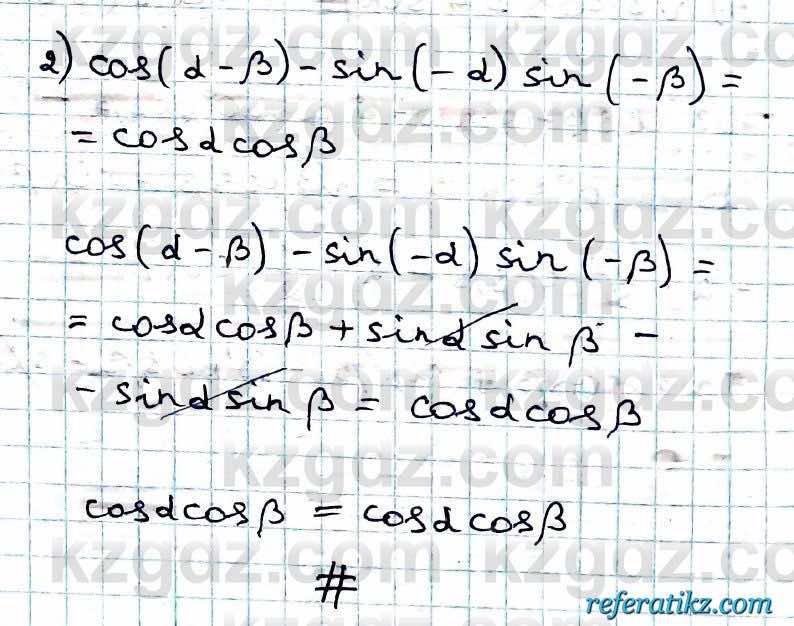 2) cos(α - β) - sin(-α) sin(-β) =
= cosα cosβ
cos(α - β) - sin(-α) sin(-β) =
= cosα cosβ + sinα sin β -
- sinα sin β = cosα cosβ
cosα cosβ = cosα cosβ
#
kzgdz.com
referatikz.com